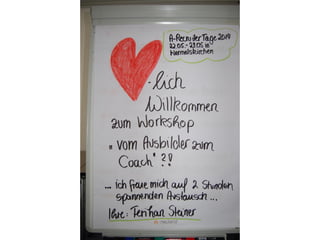 A-Recruiter Tage 2014
22.05.-23.05 in
-lich
Willkommen
zum Workshop
"vom Ausbilder zum
Coach" ?!
... ich freue mich auf 2 Stunden
spannenden Austausch ...
Ihre: Steiner